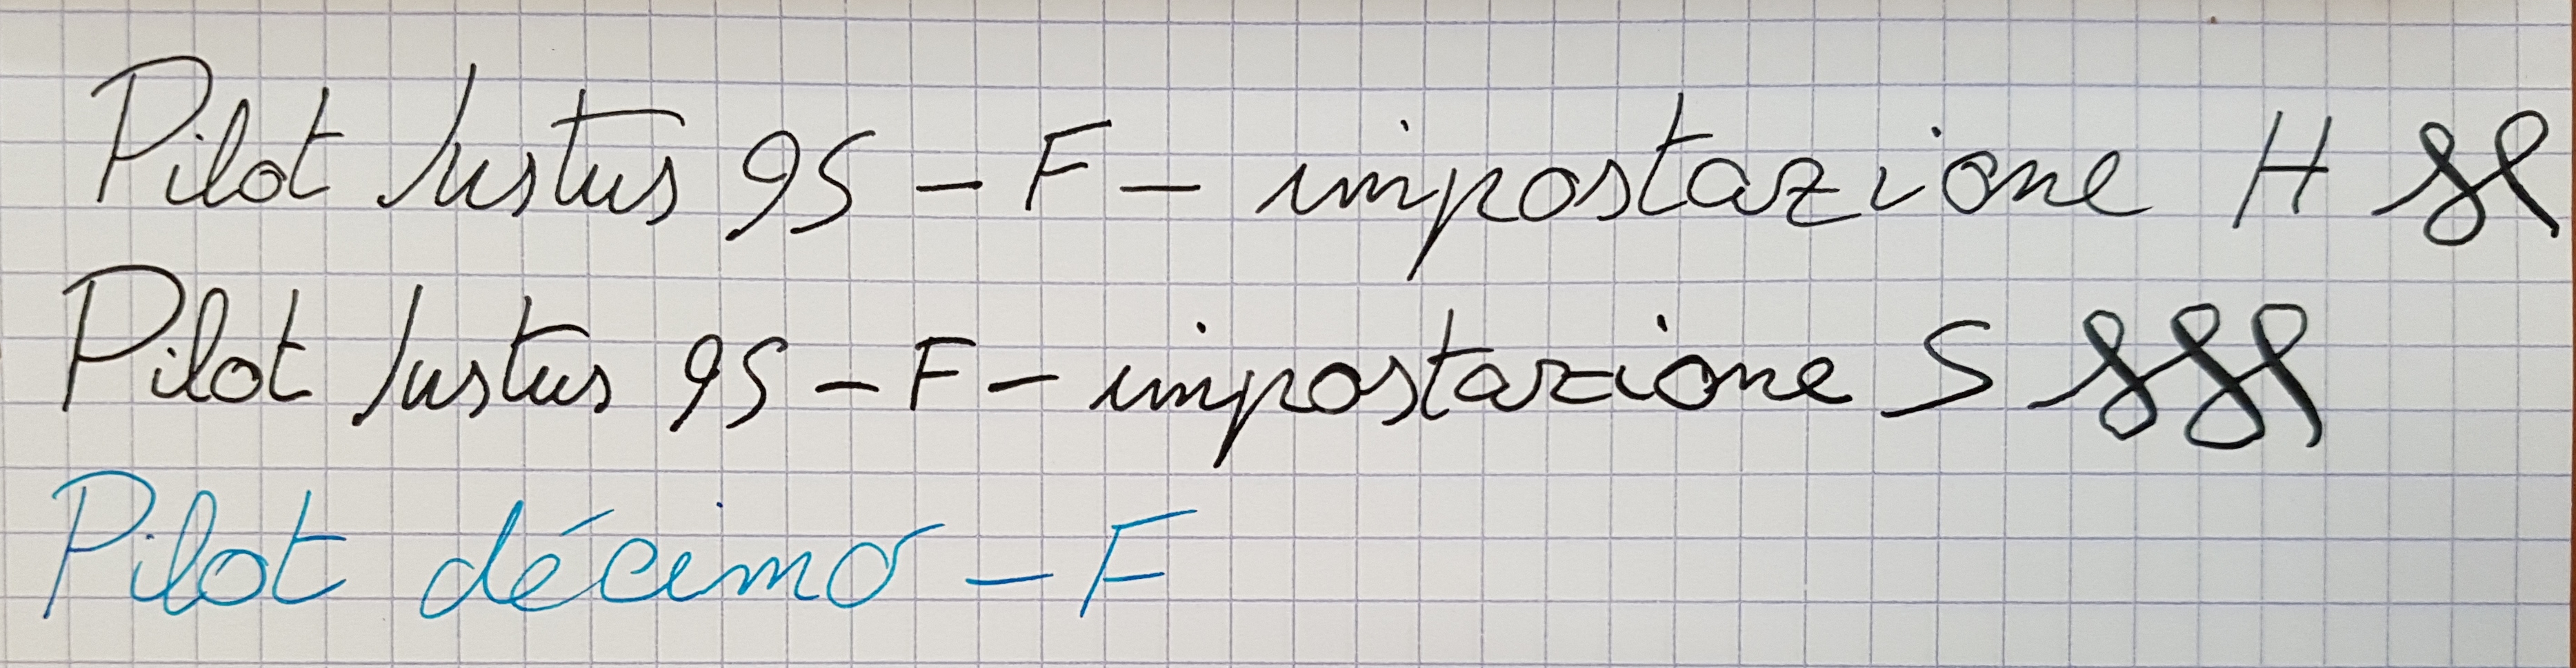 Pilot Justus 95 - F - impostazione H
Pilot Justus 95 - F - impostazione S
Pilot décimo - F